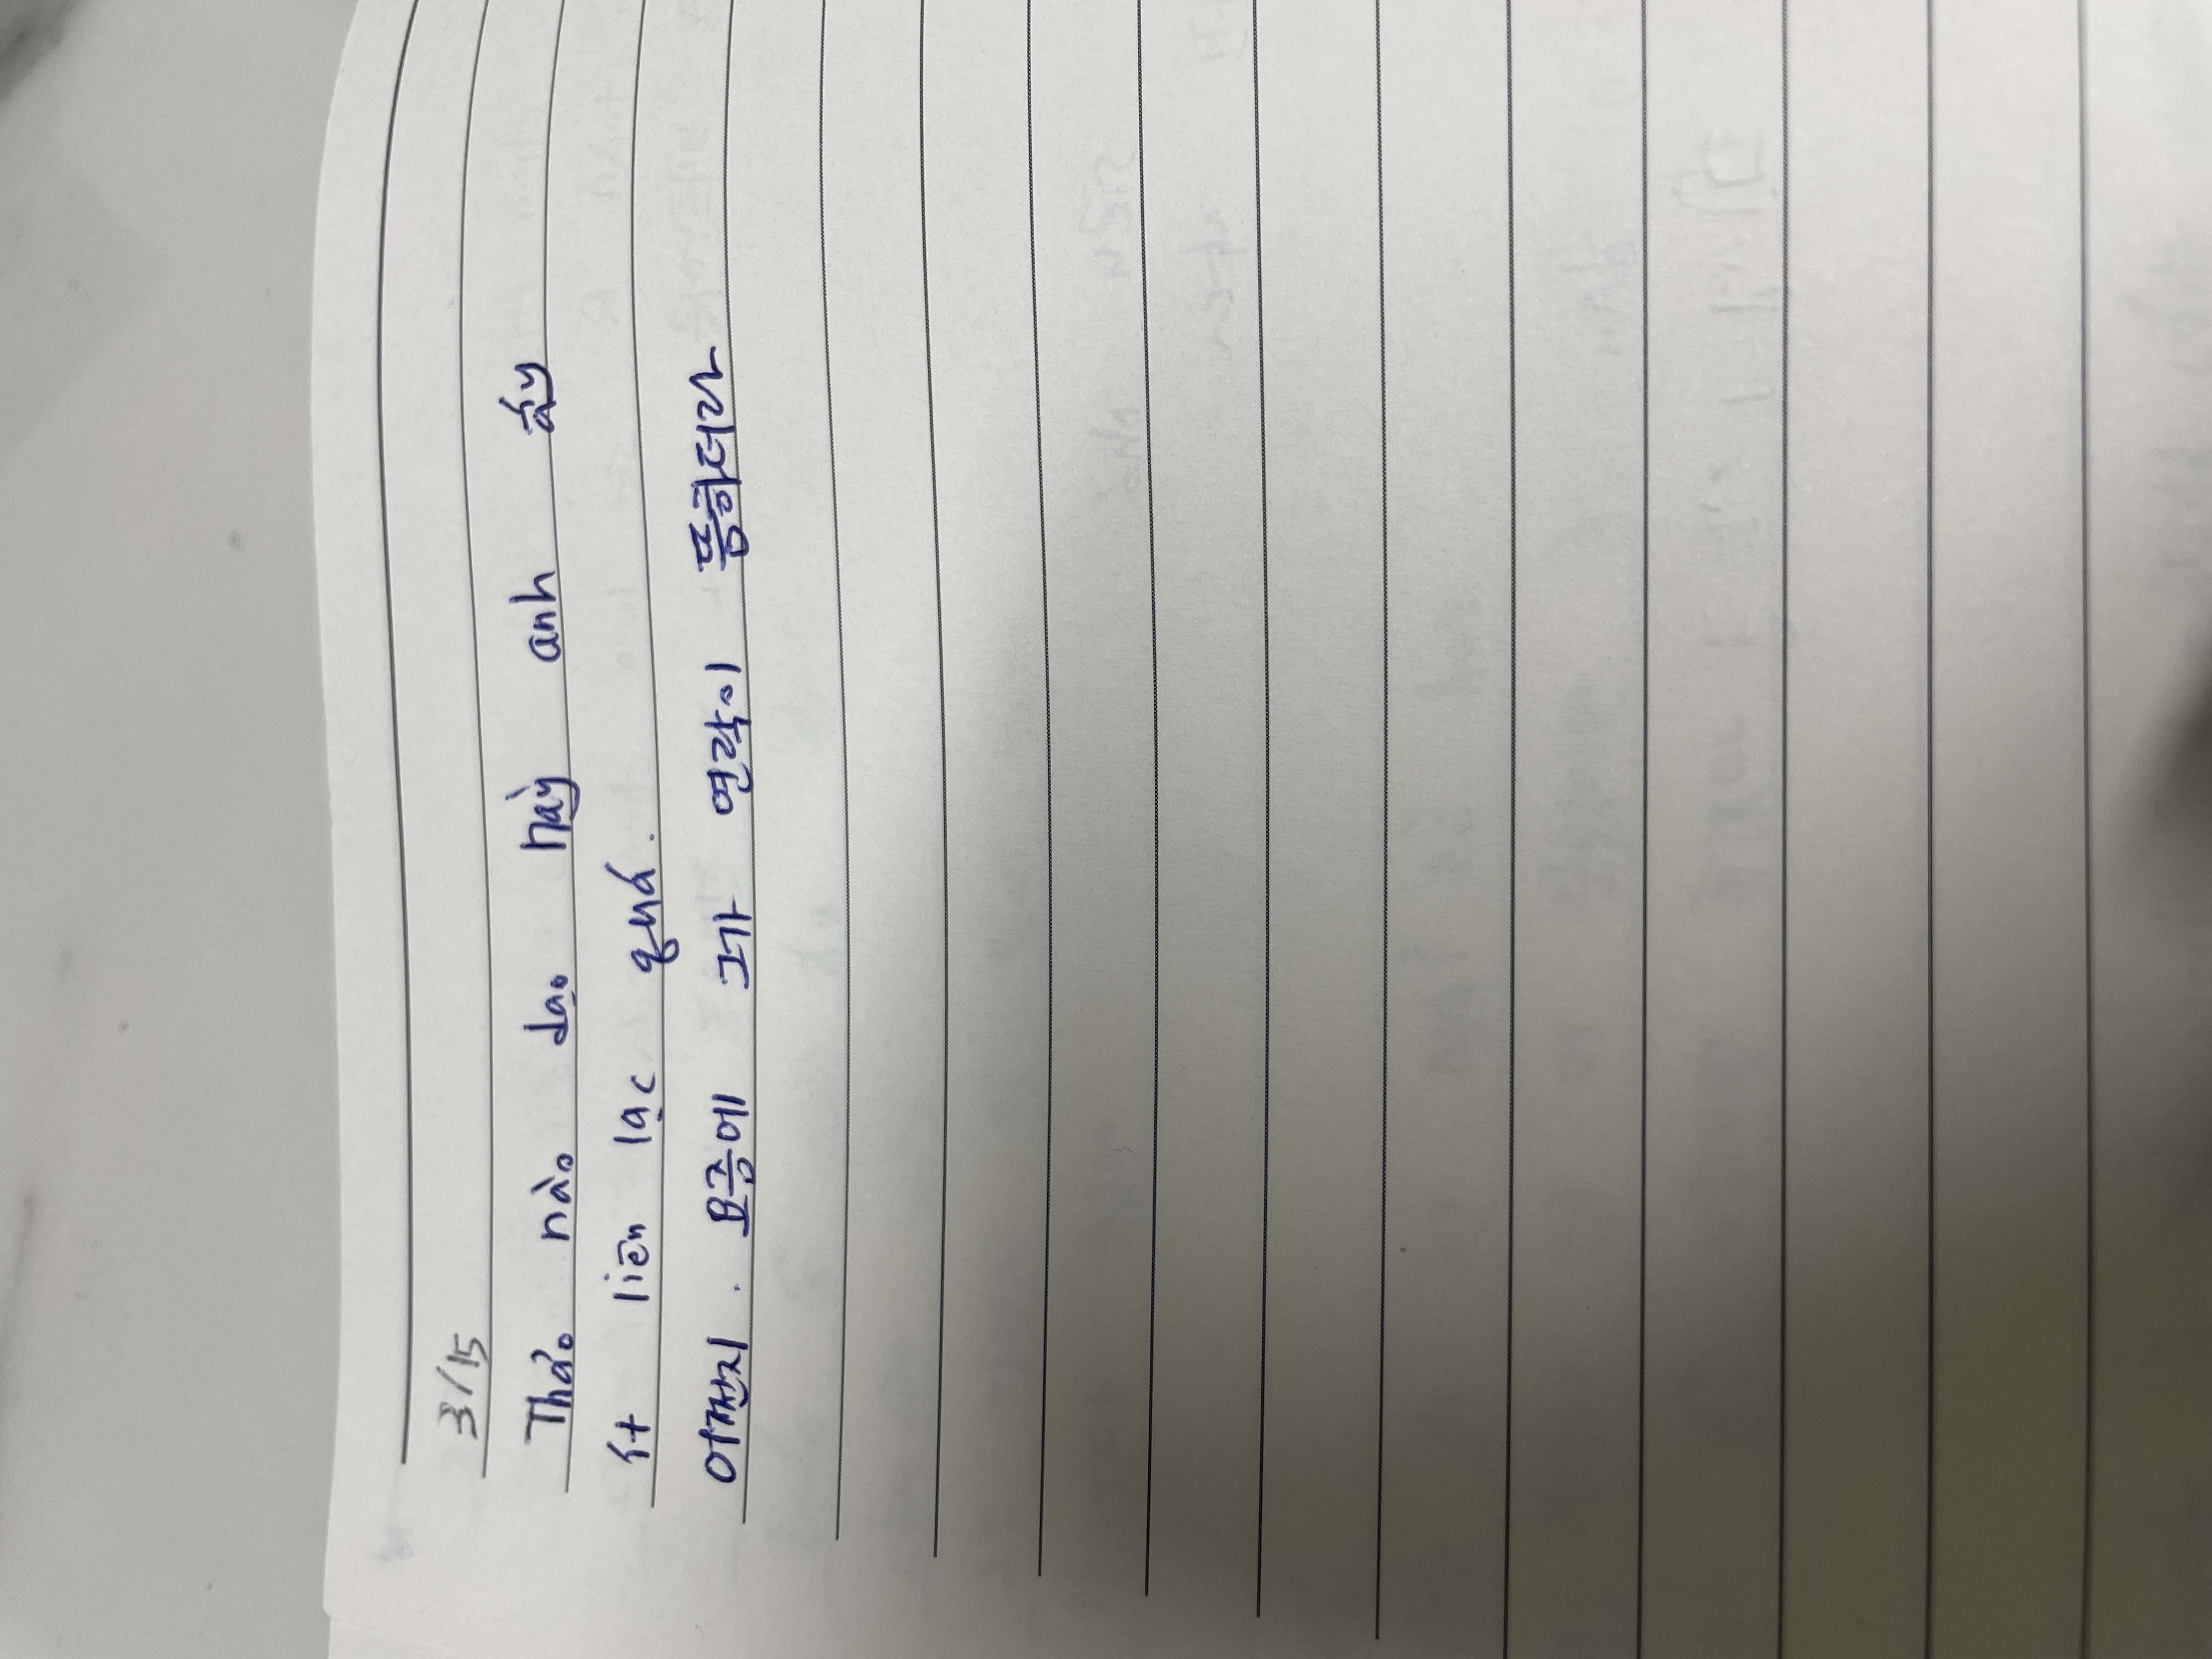 3/15
Thảo nào dạo này anh ấy
ít liên lạc quá.
어쩐지. 요즘에 그가 연락이 뜸하더라